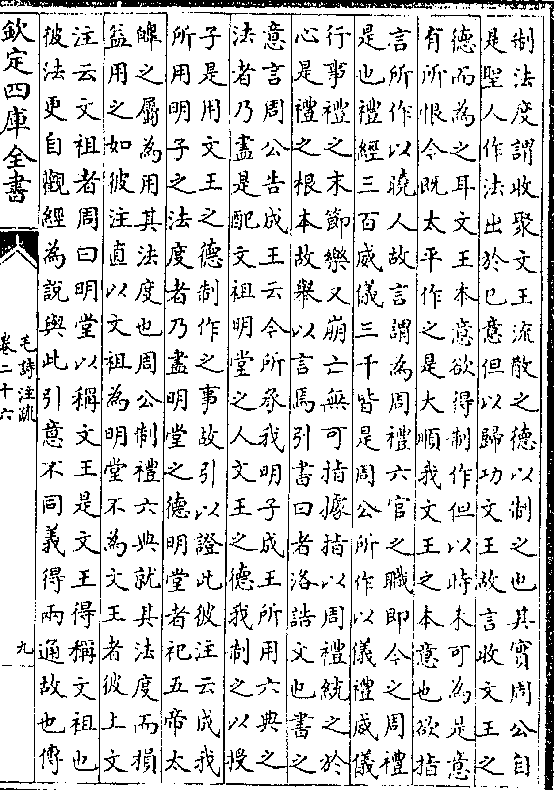 制法度謂收聚文王流散之德以制之也其實周公自
是聖人作法出於已意但以歸功文王故言收文王之
德而為之耳文王本意欲得制作但以時未可為是意
有所恨今既太平作之是大順我文王之本意也欲指
言所作以曉人故言謂為周禮六官之職即今之周禮
是也禮經三百威儀三千皆是周公所作以儀禮威儀
行事禮之末節樂又崩亡無可指據指以周禮統之於
心是禮之根本故舉以言焉引書曰者洛誥文也書之
意言周公告成王云今所承我明子成王所用六典之
法者乃盡是配文祖明堂之人文王之德我制之以授
子是用文王之德制作之事故引以證此彼注云成我
所用明子之法度者乃盡明堂之德明堂者祀五帝太
皥之屬為用其法度也周公制禮六典就其法度而損
益用之如彼注直以文祖為明堂不為文王者彼上文
注云文祖者周曰明堂以稱文王是文王得稱文祖也
彼法更自觀經為說與此引意不同義得兩通故也傳
欽定四庫全書
毛詩注疏
卷二十六
九